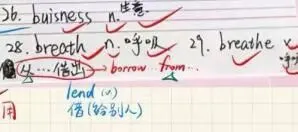 26. buisness n. 生意
28. breath n. 呼吸 29. breathe v.
从…借出 borrow…from…
lend (v)
用 借(给别人)